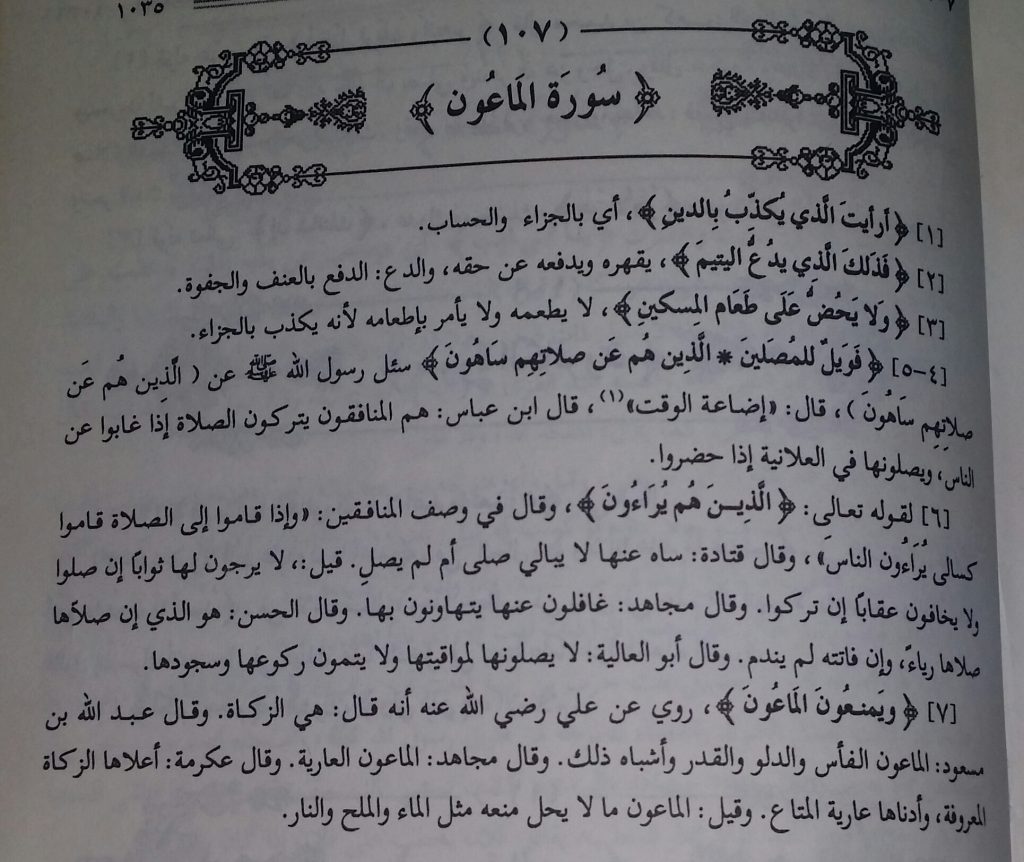 ١٠٣٥
(١٠٧)
﴿ سُورَة الَماعُون ﴾
[١] ﴿ أرأيتَ الَّذي يُكذِّبُ بِالدينِ ﴾، أي بالجزاء والحساب.
[٢] ﴿ فَذلكَ الَّذِي يدُعُّ اليتيمَ ﴾، يقهره ويدفعه عن حقه، والدع: الدفع بالعنف والجفوة.
[٣] ﴿ وَلا يَحُضُّ عَلَى طَعَام المِسكينِ ﴾، لا يطعمه ولا يأمر بإطعامه لأنه يكذب بالجزاء.
[٤-٥] ﴿ فَوَيلٌ للمُصَلينَ * الَّذِين هُم عَن صلاتِهِم سَاهُونَ ﴾ سئل رسول الله ﷺ عن ( الَّذِين هُم عَن
صلاتِهِم سَاهُونَ )، قال: «إضاعة الوقت»(١)، قال ابن عباس: هم المنافقون يتركون الصلاة إذا غابوا عن
الناس، ويصلونها في العلانية إذا حضروا.
[٦] لقوله تعالى: ﴿ الَّذِينَ هُم يُرَاءُونَ ﴾، وقال في وصف المنافقين: «وإذا قاموا إلى الصلاة قاموا
كسالى يُرَاءُون الناس»، وقال قتادة: ساه عنها لا يبالي صلى أم لم يصلِ. قيل:، لا يرجون لها ثوابًا إن صلوا
ولا يخافون عقابًا إن تركوا. وقال مجاهد: غافلون عنها يتهاونون بها. وقال الحسن: هو الذي إن صلاّها
صلاها رياءً، وإن فاتته لم يندم. وقال أبو العالية: لا يصلونها لمواقيتها ولا يتمون ركوعها وسجودها.
[٧] ﴿ ويَمنعُونَ الَماعُونَ ﴾، روي عن علي رضي الله عنه أنه قال: هي الزكاة. وقال عبد الله بن
مسعود: الماعون الفأس والدلو والقدر وأشباه ذلك. وقال مجاهد: الماعون العارية. وقال عكرمة: أعلاها الزكاة
المعروفة، وأدناها عارية المتاع. وقيل: الماعون ما لا يحل منعه مثل الماء والملح والنار.